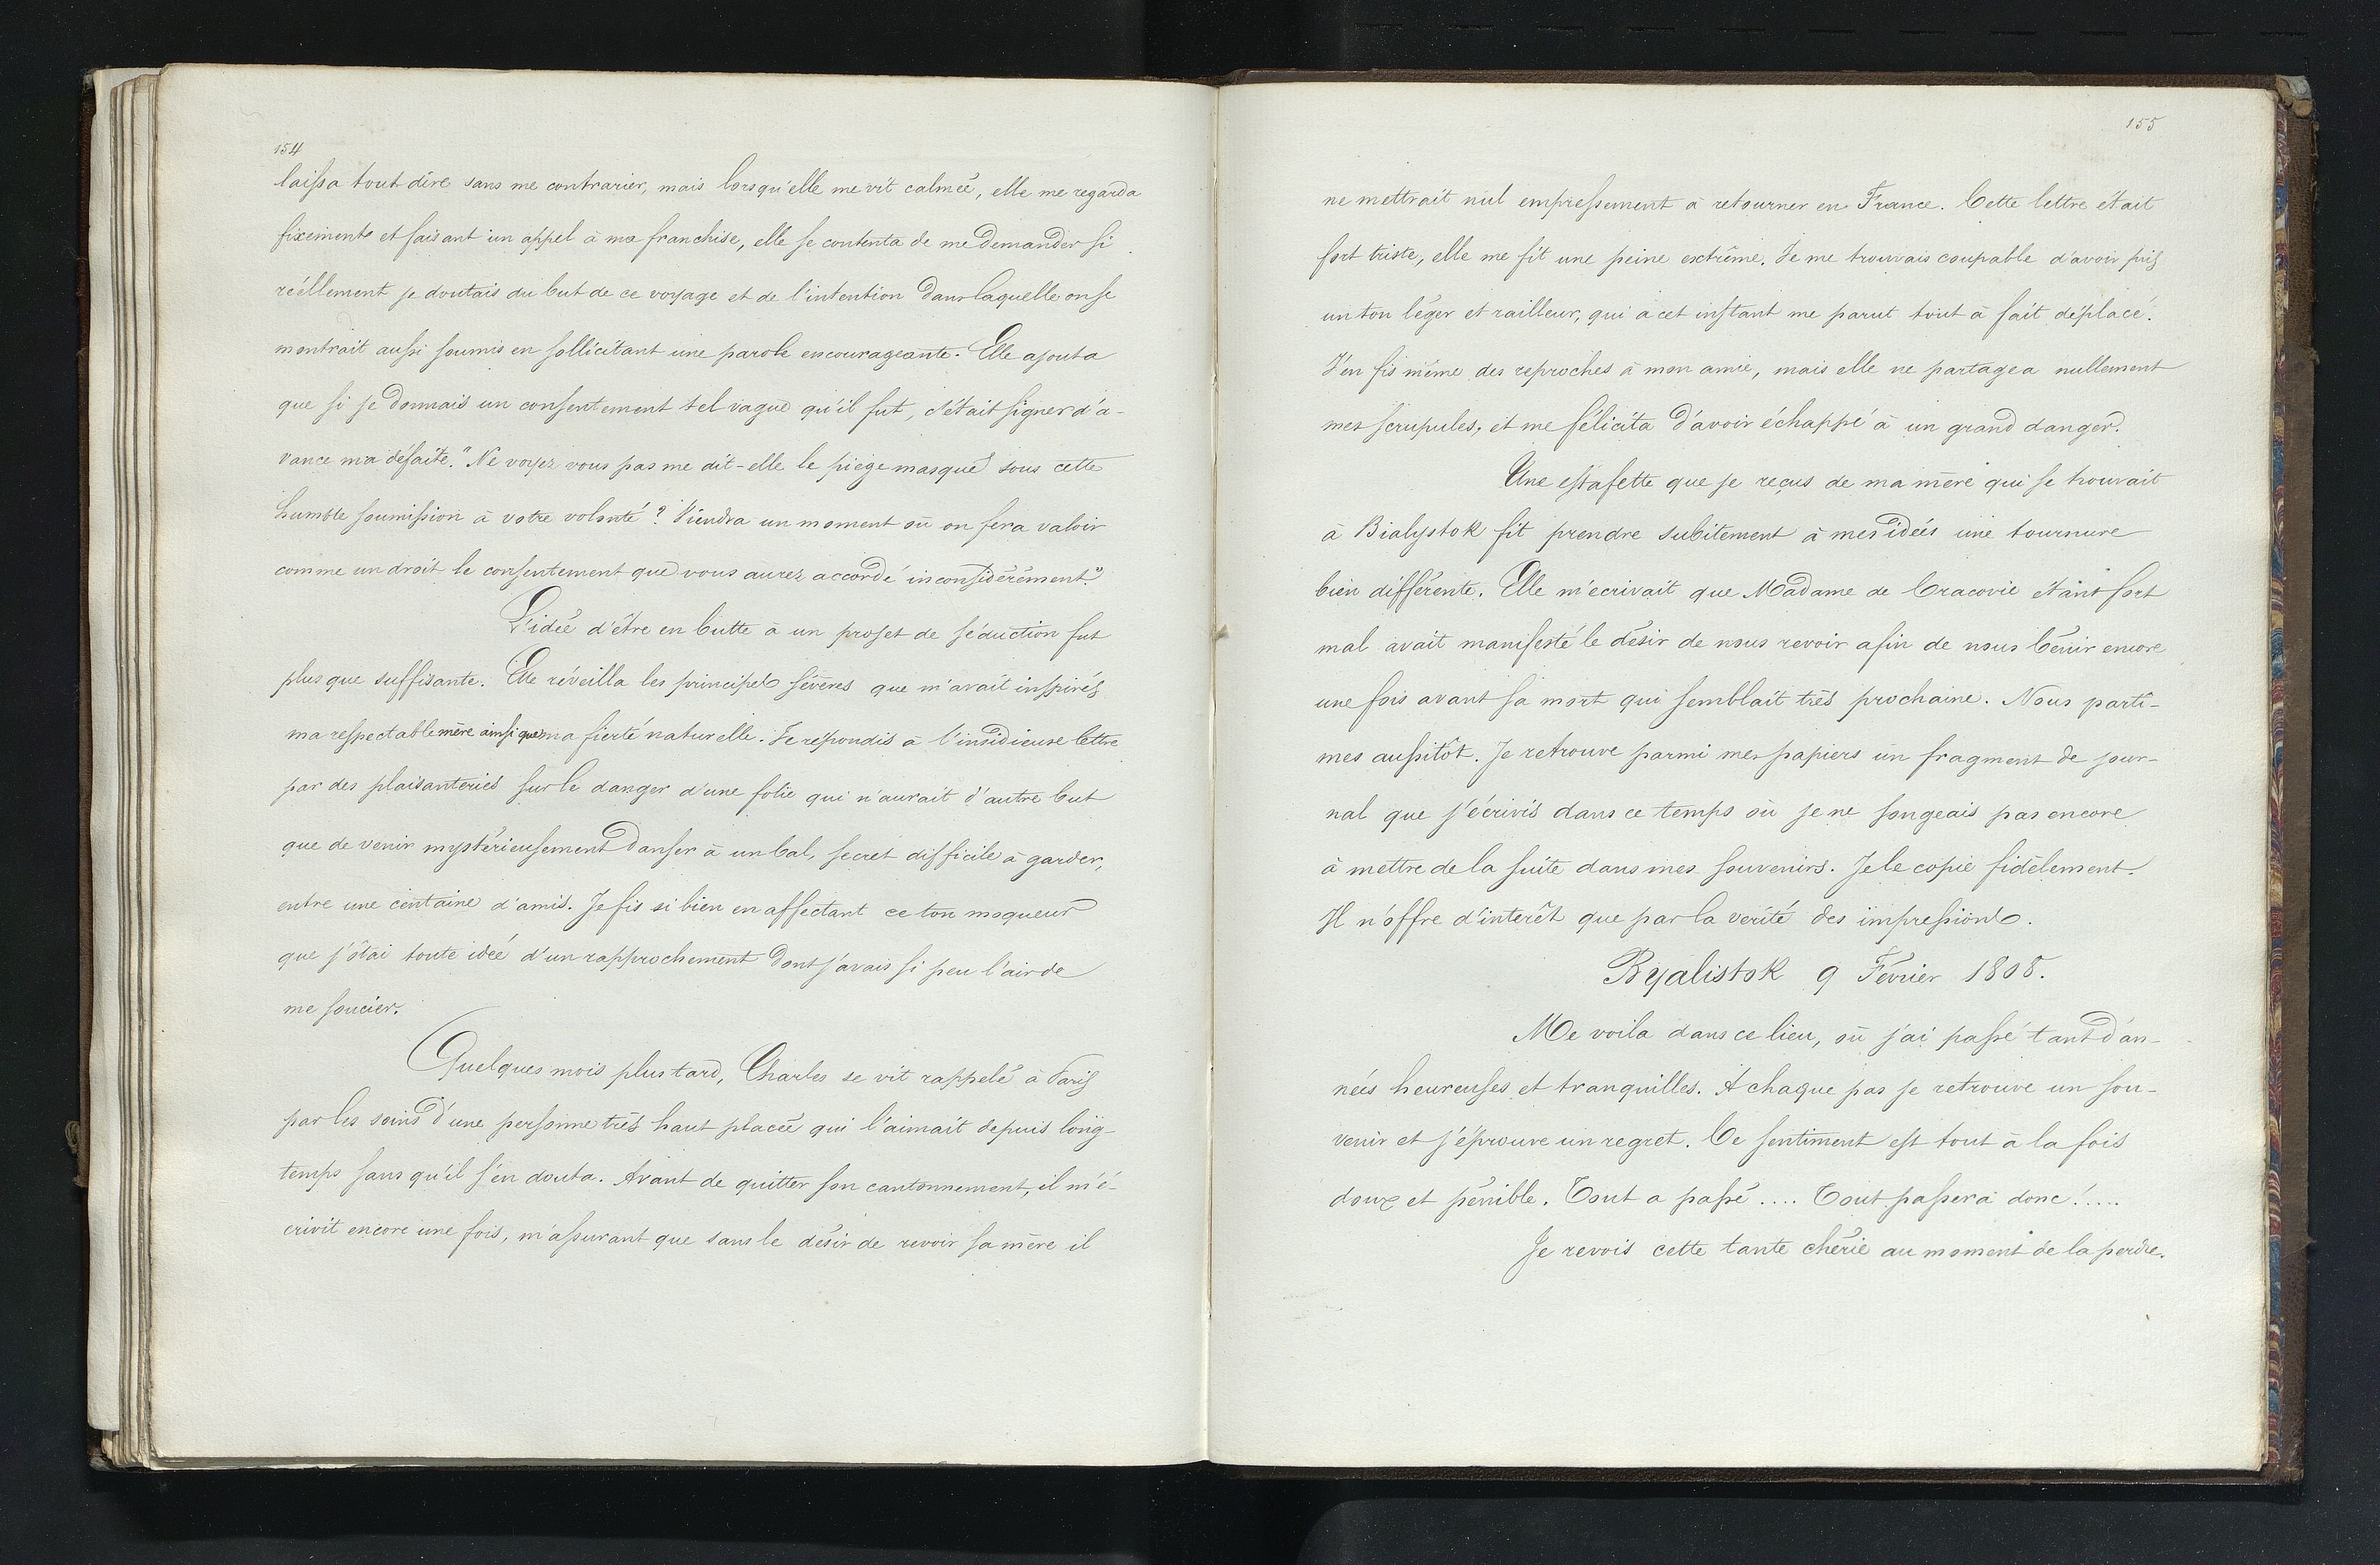 154
laissa tout dire sans me contrarier, mais lorsqu'elle me vit calmée, elle me regarda
fixement et faisant un appel à ma franchise, elle se contenta de me demander si
réellement je doutais du but de ce voyage et de l'intention dans laquelle on se
montrait aussi soumis en sollicitant une parole encourageante. Elle ajouta
que si je donnais un consentement tel vague qu'il fut, c'était signer d'a-
vance ma défaite. "Ne voyez vous pas me dit-elle le piège masqué sous cette
humble soumission à votre volonté? Viendra un moment où on fera valoir
comme un droit le consentement que vous aurez accordé inconsidérément."
L'idée d'être en butte à un projet de séduction fut
plus que suffisante. Elle réveilla les principes sévères que m'avait inspirés
ma respectable mère ainsi que ma fierté naturelle. Je repondis à l'insidieuse lettre
par des plaisanteries sur le danger d'une folie qui n'aurait d'autre but
que de venir mystérieusement danser à un bal, secret difficile à garder,
entre une centaine d'amis. Je fis si bien en affectant ce ton moqueur
que j'ôtai toute idée d'un rapprochement dont j'avais si peu l'air de
me soucier.
Quelques mois plus tard, Charles se vit rappelé à Paris
par les soins d'une personne très haut placée qui l'aimait depuis long-
temps sans qu'il s'en douta. Avant de quitter son cantonnement, il m'é-
crivit encore une fois, m'assurant que sans le désir de revoir sa mère il
155
ne mettrait nul empressement à retourner en France. Cette lettre était
fort triste, elle me fit une peine extrême. Je me trouvais coupable d'avoir pris
un ton léger et railleur, qui a cet instant me parut tout à fait déplacé.
J'en fis même des reproches à mon amie, mais elle ne partagea nullement
mes scrupules, et me félicita d'avoir échappé à un grand danger.
Une estafette que je reçus de ma mère qui se trouvait
à Bialystok fit prendre subitement à mes idées une tournure
bien différente. Elle m'écrivait que Madame de Cracovie étant fort
mal avait manifesté le désir de nous revoir afin de nous bénir encore
une fois avant sa mort qui semblait très prochaine. Nous parti-
mes aussitôt. Je retrouve parmi mes papiers un fragment de jour-
nal que j'écrivis dans ce temps où je ne songeais pas encore
à mettre de la suite dans mes souvenirs. Je le copie fidèlement.
Il n'offre d'interêt que par la verité des impressions.
Byalistok 9 Fevrier 1808.
Me voila dans ce lieu, où j'ai passé tant d'an-
nées heureuses et tranquilles. A chaque pas je retrouve un sou-
venir et j'éprouve un regret. Ce sentiment est tout à la fois
doux et pénible. Tout a passé .... Tout passera donc! .....
Je revois cette tante chérie au moment de la perdre.